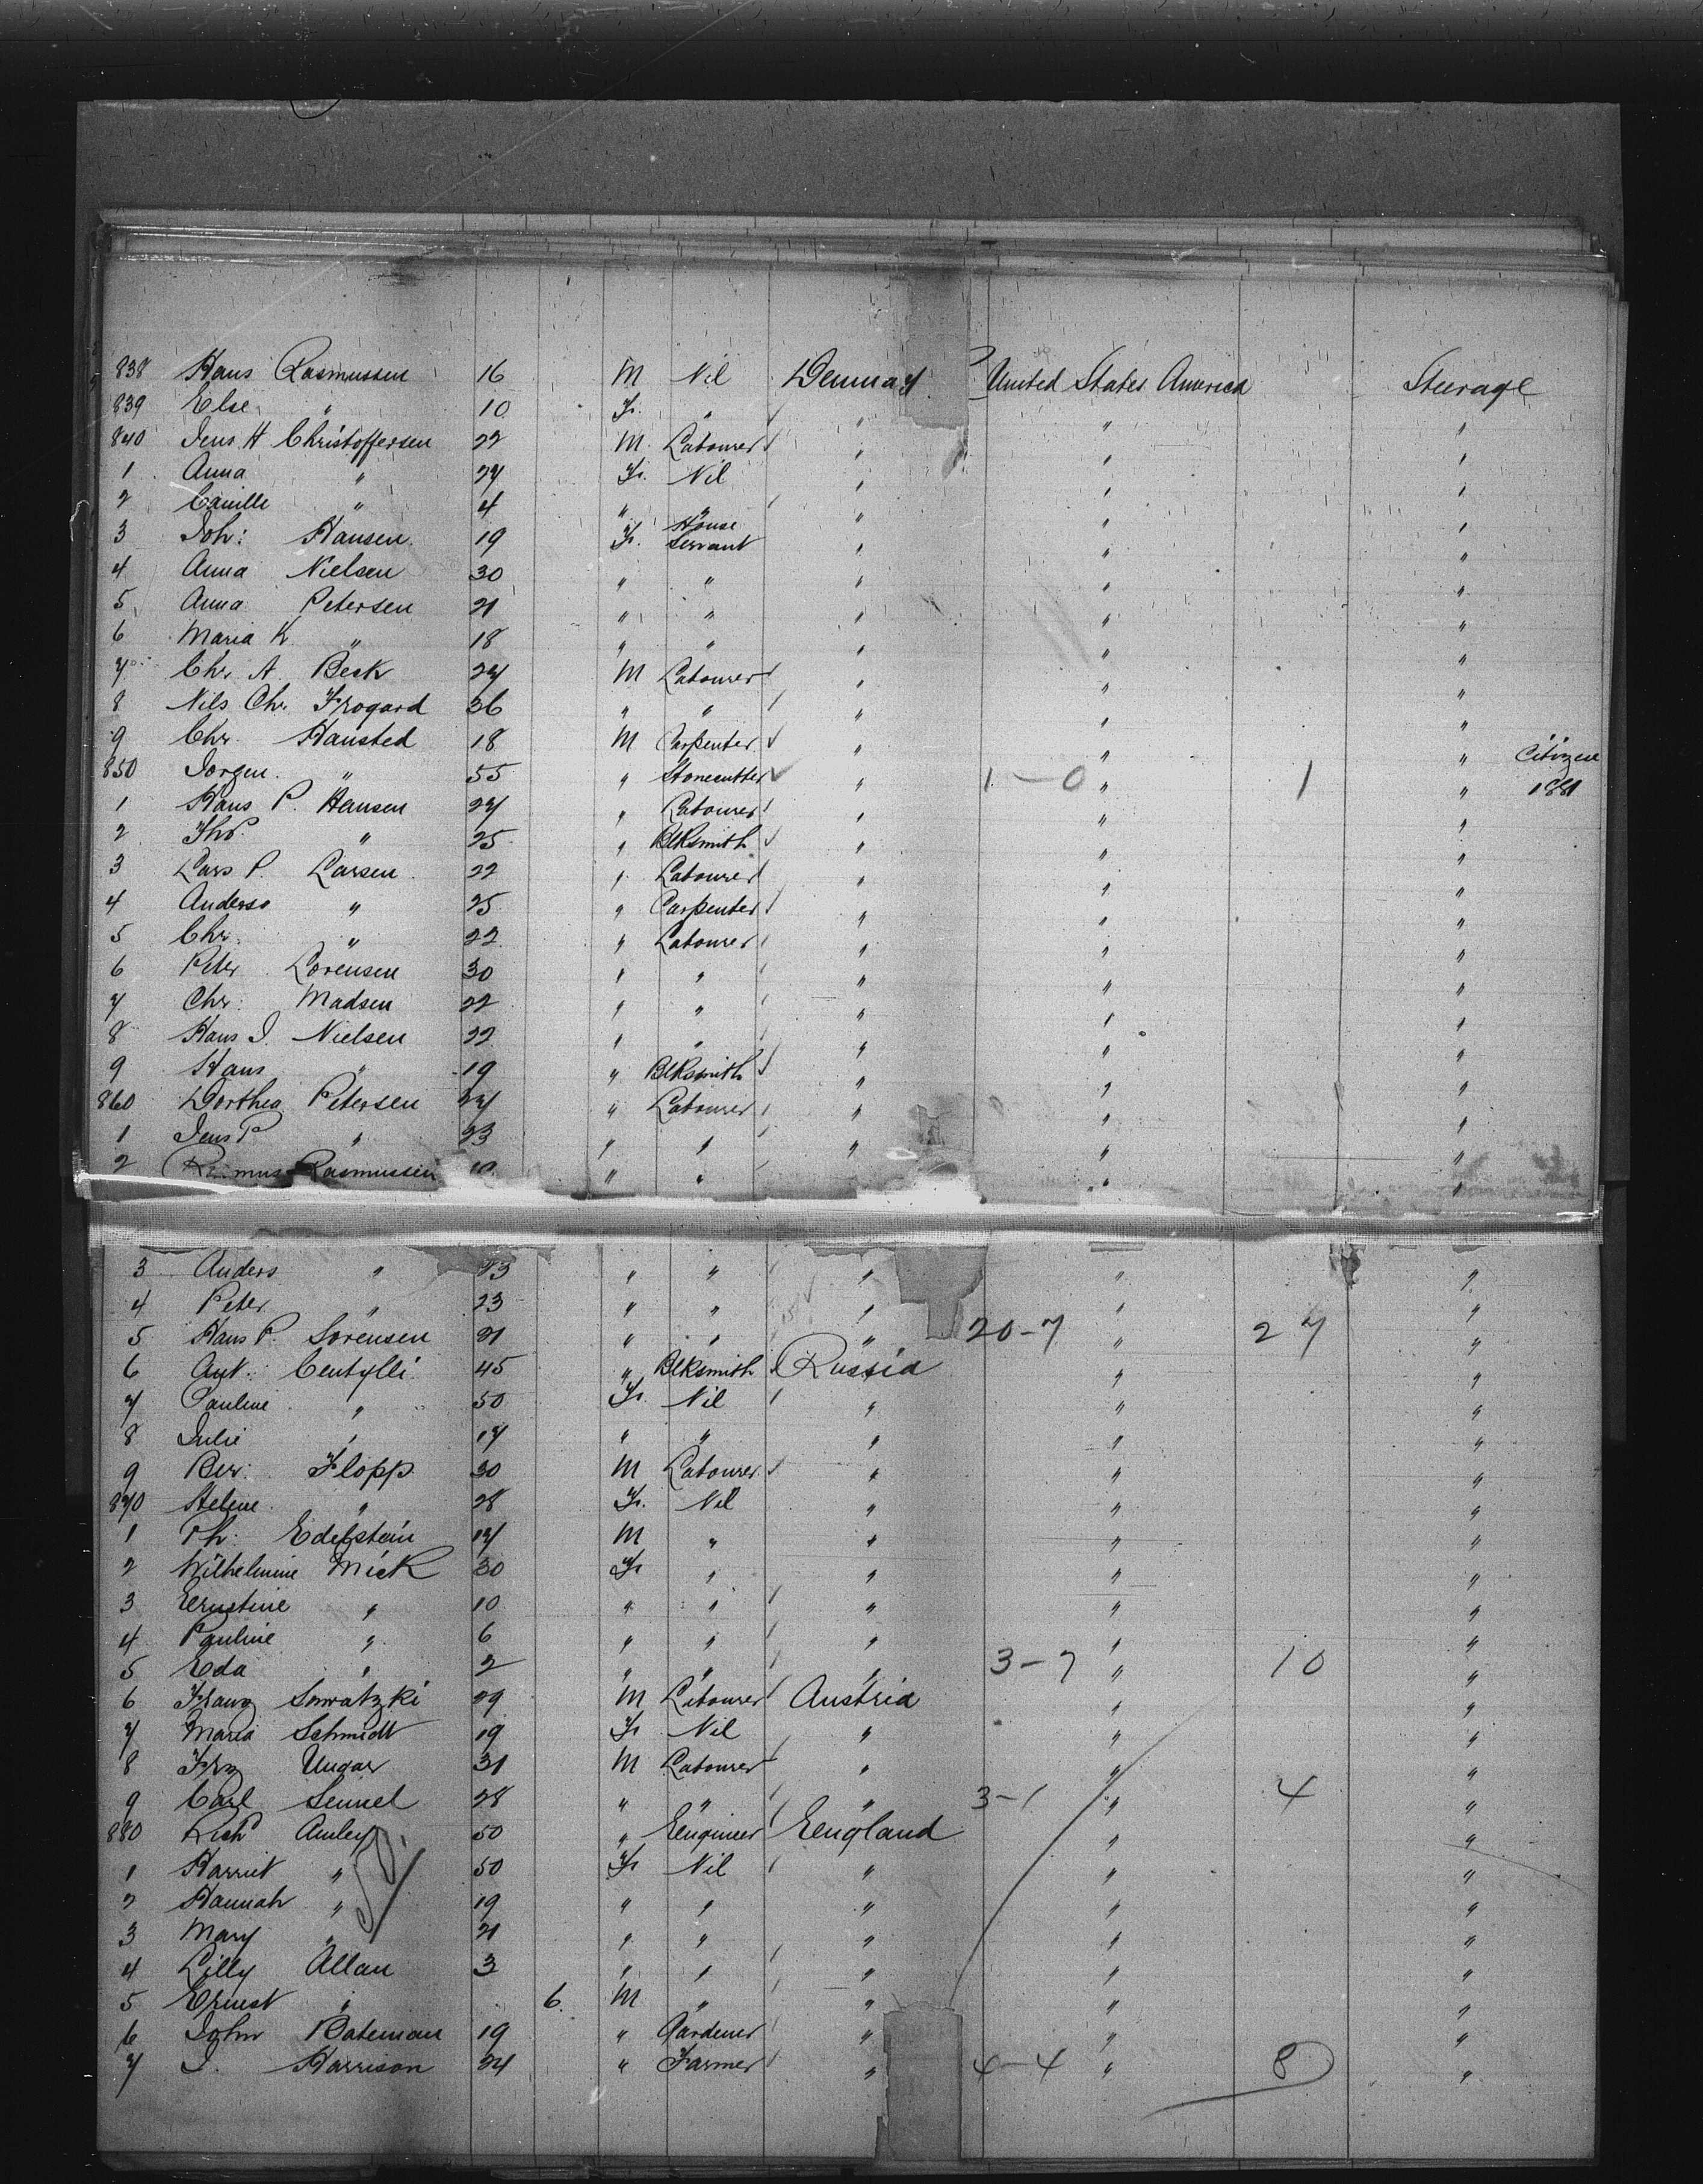 838 Hans Rasmussen 16 M Nil Denmark United States America Steerage
839 Else " 10 F. " " " "
840 Jens H Christoffersen 22 M Labourer " " "
1 Anna " 27 F. Nil " " "
2 Camille " 4 " " " " "
3 Joh: Hansen 19 F. House Servant " " "
4 Anna Nielsen 30 " " " " "
5 Anna Petersen 21 " " " " "
6 Maria K " 18 " " " " "
7 Chr. A. Beck 27 M Labourer " " "
8 Nils Chr. Frogard 36 " " " " "
9 Chr. Hansted 18 M Carpenter " " " Citizen
850 Jorgen " 55 " Stonecutter " 1-0 " 1 " 1881
1 Hans P. Hansen 27 " Labourer " " "
2 " 25 " Blksmith " " "
3 Lars P. Larsen 22 " Labourer " " "
4 Anders " 25 " Carpenter " " "
5 Chr. " 22 " Labourer " " "
6 Peter Lorensen 30 " " " " "
7 Chr: Madsen 22 " " " " "
8 Hans J. Nielsen 22 " " " " "
9 Hans " 19 " Blksmith " " "
860 Dorthea Petersen 27 " Labourer " " "
1 Jens P " 23 " " " " "
2 Rasmussen " " " " "
3 Anders " 23 " " " " "
4 Peter " 23 " " " " "
5 Hans P. Sorensen 21 " " " 20-7 " 27 "
6 Ant: Centylli 45 " Blksmith Russia " "
7 Pauline " 50 F. Nil " " "
8 Julie " 17 " " " " "
9 Ber: Flopp 30 M Labourer " " "
870 Helene " 28 F. Nil " " "
1 Th: Edelstein 17 M " " " "
2 Wilhelmine Mick 30 F. " " " "
3 Ernstine " 10 " " " " "
4 Pauline " 6 " " " " "
5 Eda " 2 " " " 3-7 " 10 "
6 Franz 29 M Labourer Austria " "
7 Maria Schmidt 19 F. Nil " " "
8 Frz Ungar 31 M Labourer " " "
9 Carl Sennel 28 " " " 3-1 " 4 "
880 Richd Amley 50 " Engineer England " "
1 Harriet " 50 F. Nil " " "
2 Hannah " 19 " " " " "
3 Mary " 21 " " " " "
4 Lilly Allan 3 " " " " "
5 Ernest " 6. M " " " "
6 John Bateman 19 " Gardener " " "
7 J. Harrison 24 " Farmer " 4-4 " 8 "